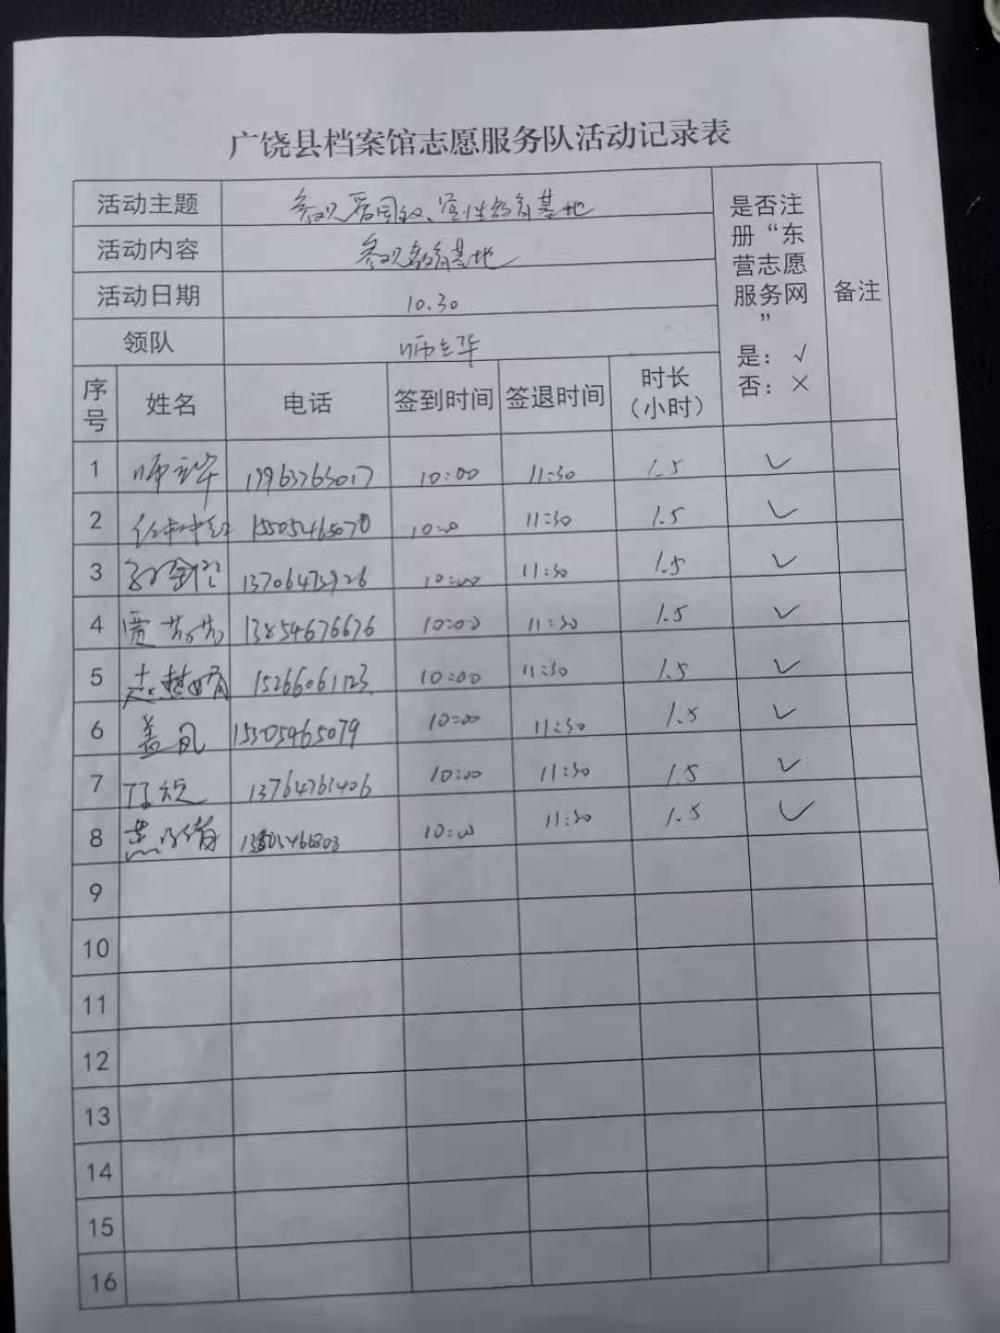 广饶县档案馆志愿服务队活动记录表
活动主题 参观爱国主义、党性教育基地
活动内容 参观教育基地
活动日期 10.30
领队 师立华
是否注册“东营志愿服务网”
是：√
否：×
备注
序号 姓名 电话 签到时间 签退时间 时长（小时）
1 师立华 10:00 11:30 1.5 √
2 15505465070 10:00 11:30 1.5 √
3 10:00 11:30 1.5 √
4 贾芳芳 13854676676 10:00 11:30 1.5 √
5 15266061123 10:00 11:30 1.5 √
6 盖凤 10:00 11:30 1.5 √
7 13764761406 10:00 11:30 1.5 √
8 10:00 11:30 1.5 √
9
10
11
12
13
14
15
16